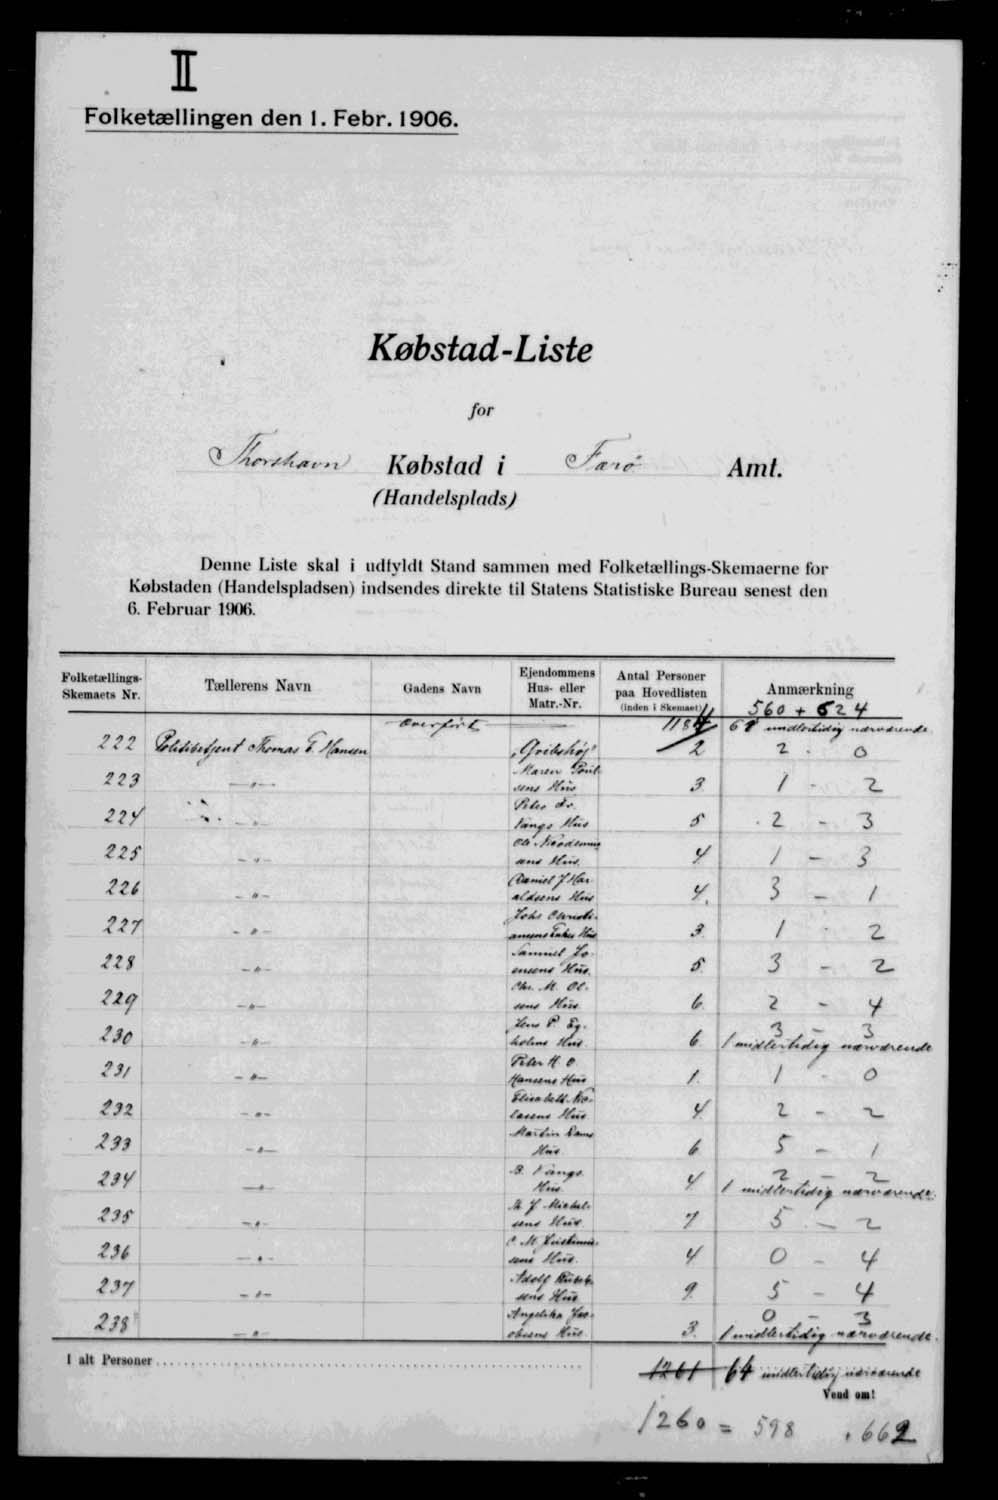 II
Folketællingen den 1. Febr. 1906.
Købstad-Liste
for
Thorshavn Købstad i Færø Amt.
(Handelsplads)
Denne Liste skal i udfyldt Stand sammen med Folketællings-Skemaerne for
Købstaden (Handelspladsen) indsendes direkte til Statens Statistiske Bureau senest den
6. Februar 1906.
Folketællings-Skemaets Nr. Tællerens Navn Gadens Navn Ejendommens Hus- eller Matr.-Nr. Antal Personer paa Hovedlisten (inden i Skemaet) Anmærkning
560 + 624
Overført 1184 midlertidig nærværende
222 Politibetjent Thomas T. Hansen "Qvilehøj" 2 2 - 0
223 -"- Maren Poulsens Hus 3. 1 - 2
224 -"- Vangs Hus 5 2 - 3
225 -"- Ole Nicodemussens Hus. 4. 1 - 3
226 -"- Daniel J. Haraldsens Hus 4. 3 - 1
227 -"- Johs Christiansens Enkes Hus 3. 1 - 2
228 -"- Samuel Joensens Hus. 5. 3 - 2
229 -"- Chr. M. Olsens Hus. 6. 2 - 4
230 -"- Jens P. Egholms Hus. 6. 3 - 3
1 midlertidig nærværende
231 -"- Peter H. O. Hansens Hus 1. 1 - 0
232 -"- Elisabeth Nicolasens Hus 4. 2 - 2
233 -"- Martin Dams Hus. 6 5 - 1
234 -"- Vangs Hus. 4. 2 - 2
1 midlertidig nærværende.
235 -"- J. Michelsens Hus 7 5 - 2
236 -"- C. M. Hus. 4 0 - 4
237 -"- Adolf Hus 9. 5 - 4
238 -"- Angelika Jacobsens Hus. 3. 0 - 3
1 midlertidig nærværende.
I alt Personer 1261 64 midlertidig nærværende
Vend om!
1260 = 598 + 662